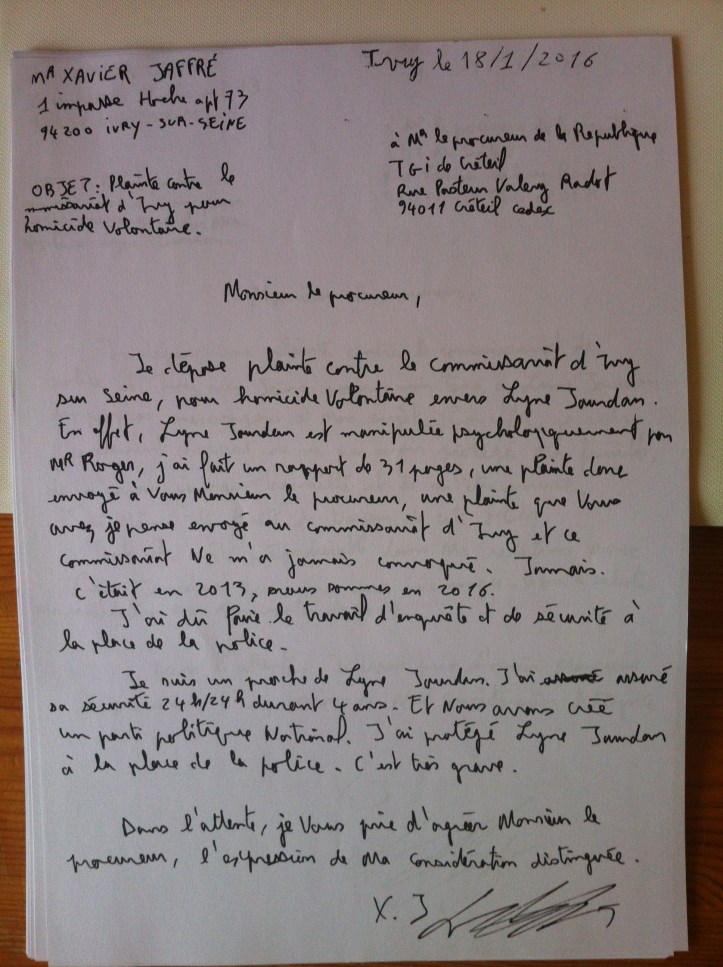 Mr XAVIER JAFFRÉ
1 impasse Hoche apt 73
94200 IVRY-SUR-SEINE
Ivry le 18/1/2016
à Mr le procureur de la Republique
TGi de Créteil
Rue Pasteur Valery Radot
94011 Créteil cedex
OBJET: Plainte contre le
commissariat d'Ivry pour
homicide Volontaire.
Monsieur le procureur,
Je dépose plainte contre le commissariat d'Ivry
sur Seine, pour homicide Volontaire envers Lyne Jourdan.
En effet, Lyne Jourdan est manipulée psychologiquement par
MR Roger, j'ai fait un rapport de 31 pages, une plainte donc
envoyé à Vous Monsieur le procureur, une plainte que Vous
avez je pense envoyé au commissariat d'Ivry et ce
commissariat Ne m'a jamais convoqué. Jamais.
c'était en 2013, nous sommes en 2016.
J'ai dû faire le travail d'enquête et de sécurité à
la place de la police.
Je suis un proche de Lyne Jourdan. J'ai assuré
sa sécurité 24h/24h durant 4 ans. Et Nous avons créé
un parti politique National. J'ai protégé Lyne Jourdan
à la place de la police. C'est très grave.
Dans l'attente, je Vous prie d'agréer Monsieur le
procureur, l'expression de Ma considération distinguée.
X. J